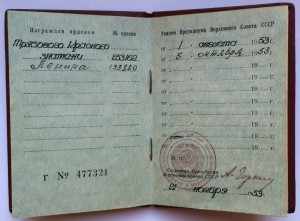 Награжден орденом № ордена
Трудового Красного
знамени
Ленина
г № 477321
Указом Президиума Верховного Совета СССР
от 1 августа 1953 г.
от 5 октября 1953 г.
от 19 г.
от 19 г.
от 19 г.
от 19 г.
от 19 г.
от 19 г.
Секретарь Президиума
Верховного Совета СССР
21 ноября 1953 г.